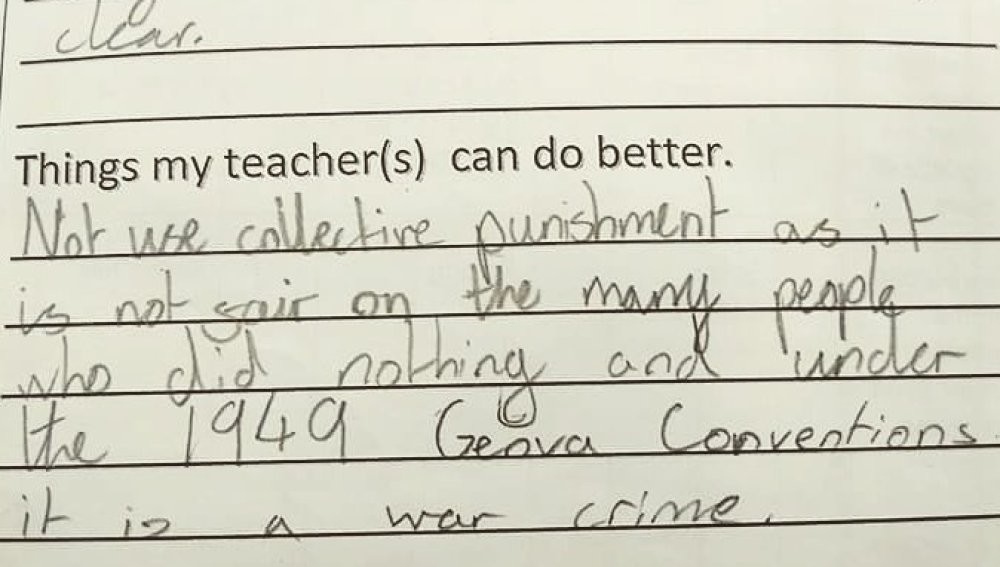 clear.
Things my teacher(s) can do better.
Not use collective punishment as it
is not fair on the many people
who did nothing and under
the 1949 Genova Conventions
it is a war crime.